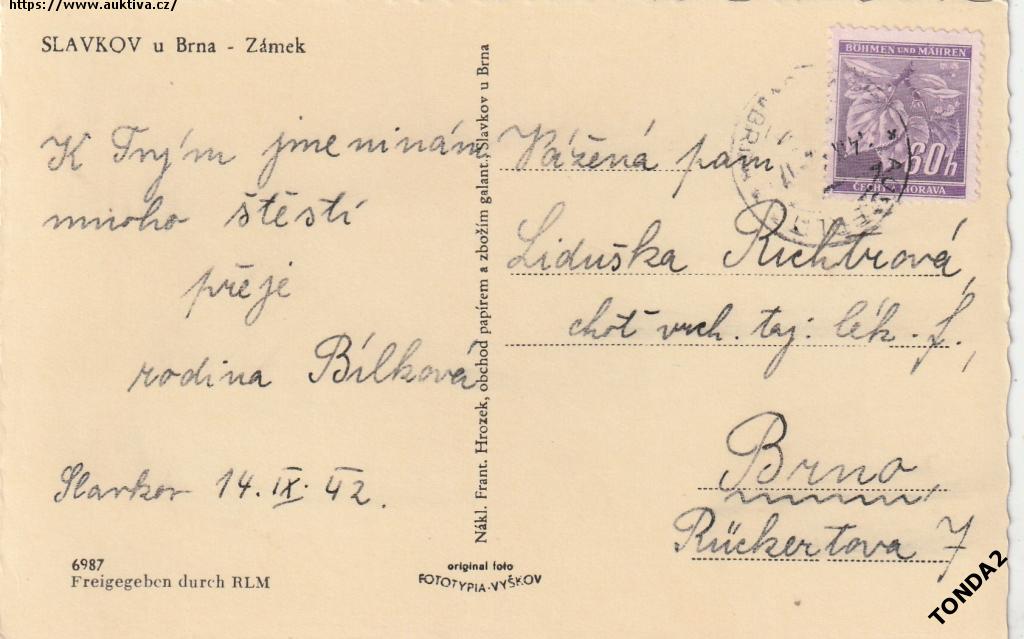 https://www.auktiva.cz/
SLAVKOV u Brna - Zámek
K Tvým jmeninám
mnoho štěstí
přeje
rodina Bílková
Slavkov 14. IX. 42.
6987
Freigegeben durch RLM
Nákl. Frant. Hrozek, obchod papírem a zbožím galant., Slavkov u Brna
original foto
FOTOTYPIA-VYŠKOV
BÖHMEN UND MÄHREN
60h
ČECHY MORAVA
Vážená paní
Liduška Richtrová,
choť vrch. taj. lék. f.,
Brno
Rückertova 7
TONDA2